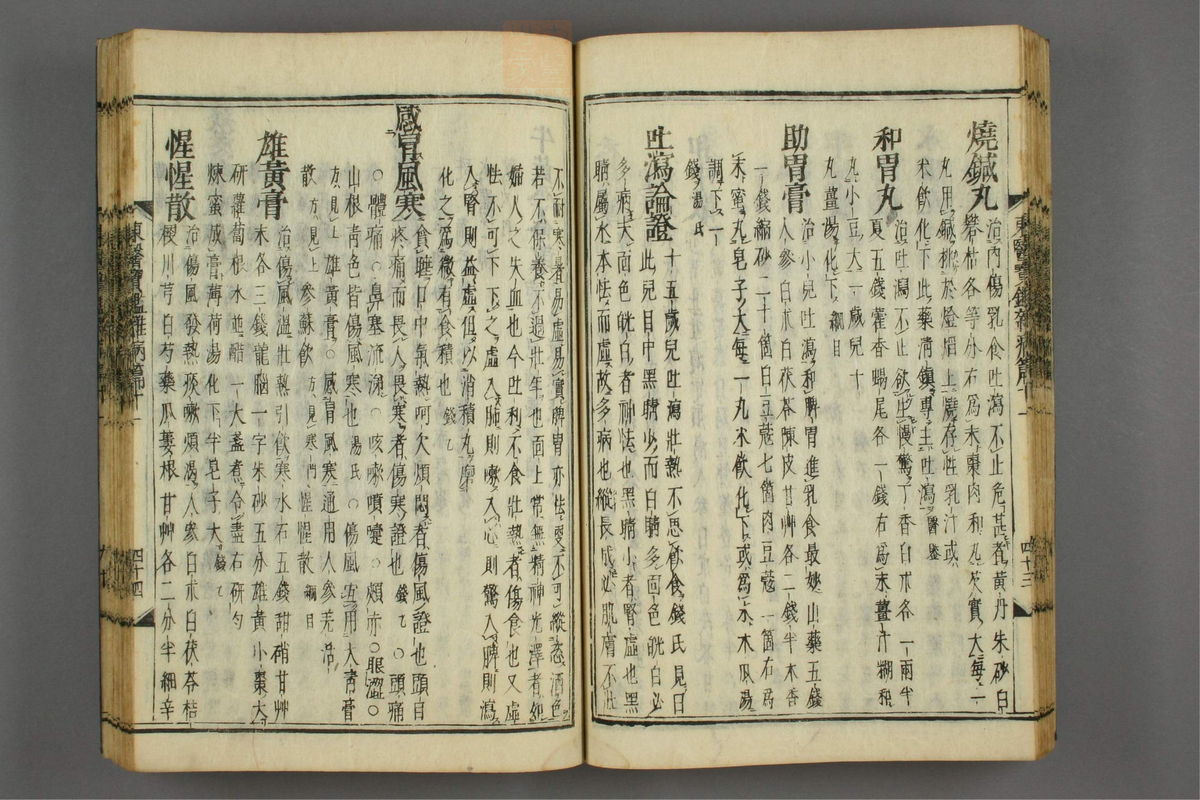 燒鍼丸 治內傷乳食吐瀉不止危甚者黃丹朱砂白
礬枯各等分右爲末棗肉和丸芡實大每一
丸用鍼挑於燈焰上燒存性乳汁或
米飮化下此藥淸鎭專主吐瀉 醫鑒
和胃丸 治吐瀉不止欲生慢驚丁香白朮各一兩半
夏五錢藿香蝎尾各一錢右爲末薑汁糊和
丸小豆大一歲兒十
丸薑湯化下 綱目
助胃膏 治小兒吐瀉和脾胃進乳食最妙山藥五錢
人參白朮白茯苓陳皮甘艸各二錢半木香
一錢縮砂二十箇白豆蔻七箇肉豆蔻一箇右爲
末蜜丸皂子大每一丸米飮化下或爲末木瓜湯
調下一
錢 湯氏
吐瀉論證 十五歲兒吐瀉壯熱不思飮食錢氏見曰
此兒目中黑睛少而白睛多面色㿠白必
多病夫面色㿠白者神怯也黑睛小者腎虛也黑
睛屬水本怯而虛故多病也縱長成必肌膚不壯
不耐寒暑易虛易實脾胃亦怯更不可縱恣酒色
若不保養不過壯年也面上常無精神光澤者如
婦人之失血也今吐利不食壯熱者傷食也又虛
怯不可下下之虛入肺則嗽入心則驚入脾則瀉
入腎則益虛但以消積丸磨
化之爲微有食積也 錢乙
感冒風寒 貪睡口中氣熱呵欠煩悶者傷風證也頭目
疼痛而畏人畏寒者傷寒證也 錢乙 ○頭痛
○體痛○鼻塞流涕○咳嗽噴嚏○頰赤○眼澀○
山根靑色皆傷風寒也 湯氏 ○傷風宜用大靑膏
方見上 雄黃膏○感冒風寒通用人參羌活
散 方見上 參蘇飮 方見寒門 惺惺散 綱目
雄黃膏 治傷風溫壯熱引飮寒水石五錢甜硝甘艸
末各三錢龍腦一字朱砂五分雄黃小棗大
硏蘿葍根水並醋一大盞煮令盡右硏勻
煉蜜成膏薄荷湯化下半皂子大 錢乙
惺惺散 治傷風發熱痰嗽煩渴人參白朮白茯苓桔
梗川芎白芍藥瓜蔞根甘艸各二分半細辛
東醫寶鑑雜病篇十一
四十三
東醫寶鑑雜病篇十一
四十四